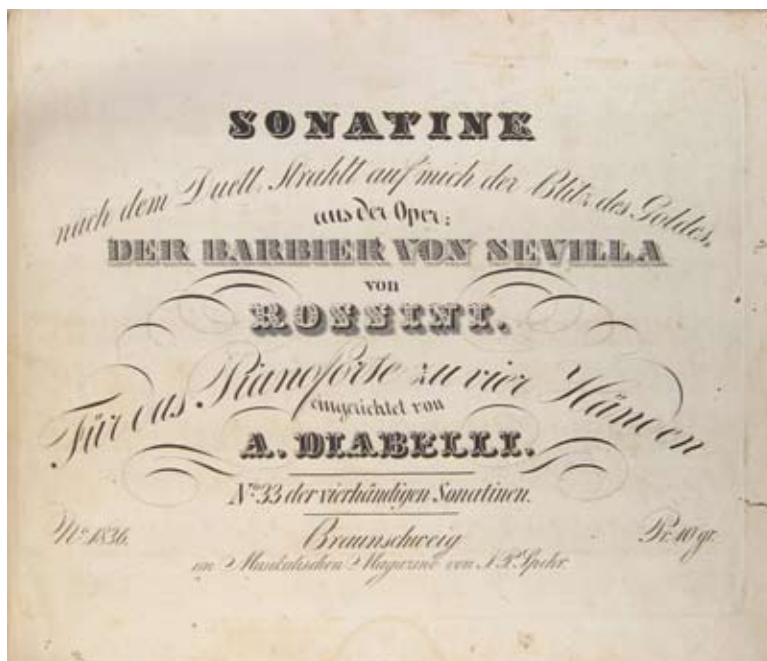 SONATINE
nach dem Duett, Strahlt auf mich der Blitz des Goldes,
aus der Oper:
DER BARBIER VON SEVILLA
von
ROSSINI.
Für das Pianoforte zu vier Händen
eingerichtet von
A. DIABELLI.
No. 33 der vierhändigen Sonatinen.
No. 1836.
Braunschweig
Pr. 10 gr.
im Musikalischen Magazine von J. P. Spehr.